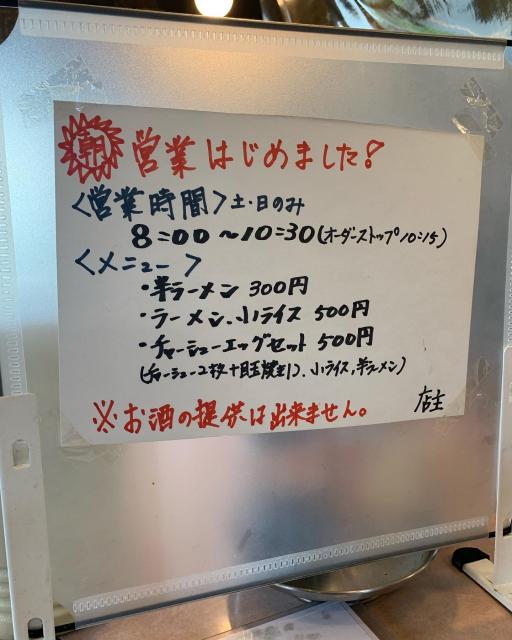 朝営業はじめました!
<営業時間>土・日のみ
8:00〜10:30(オーダーストップ10:15)
<メニュー>
・半ラーメン 300円
・ラーメン、小ライス 500円
・チャーシューエッグセット 500円
(チャーシュー2枚+目玉焼き1つ、小ライス、半ラーメン)
※お酒の提供は出来ません。
店主